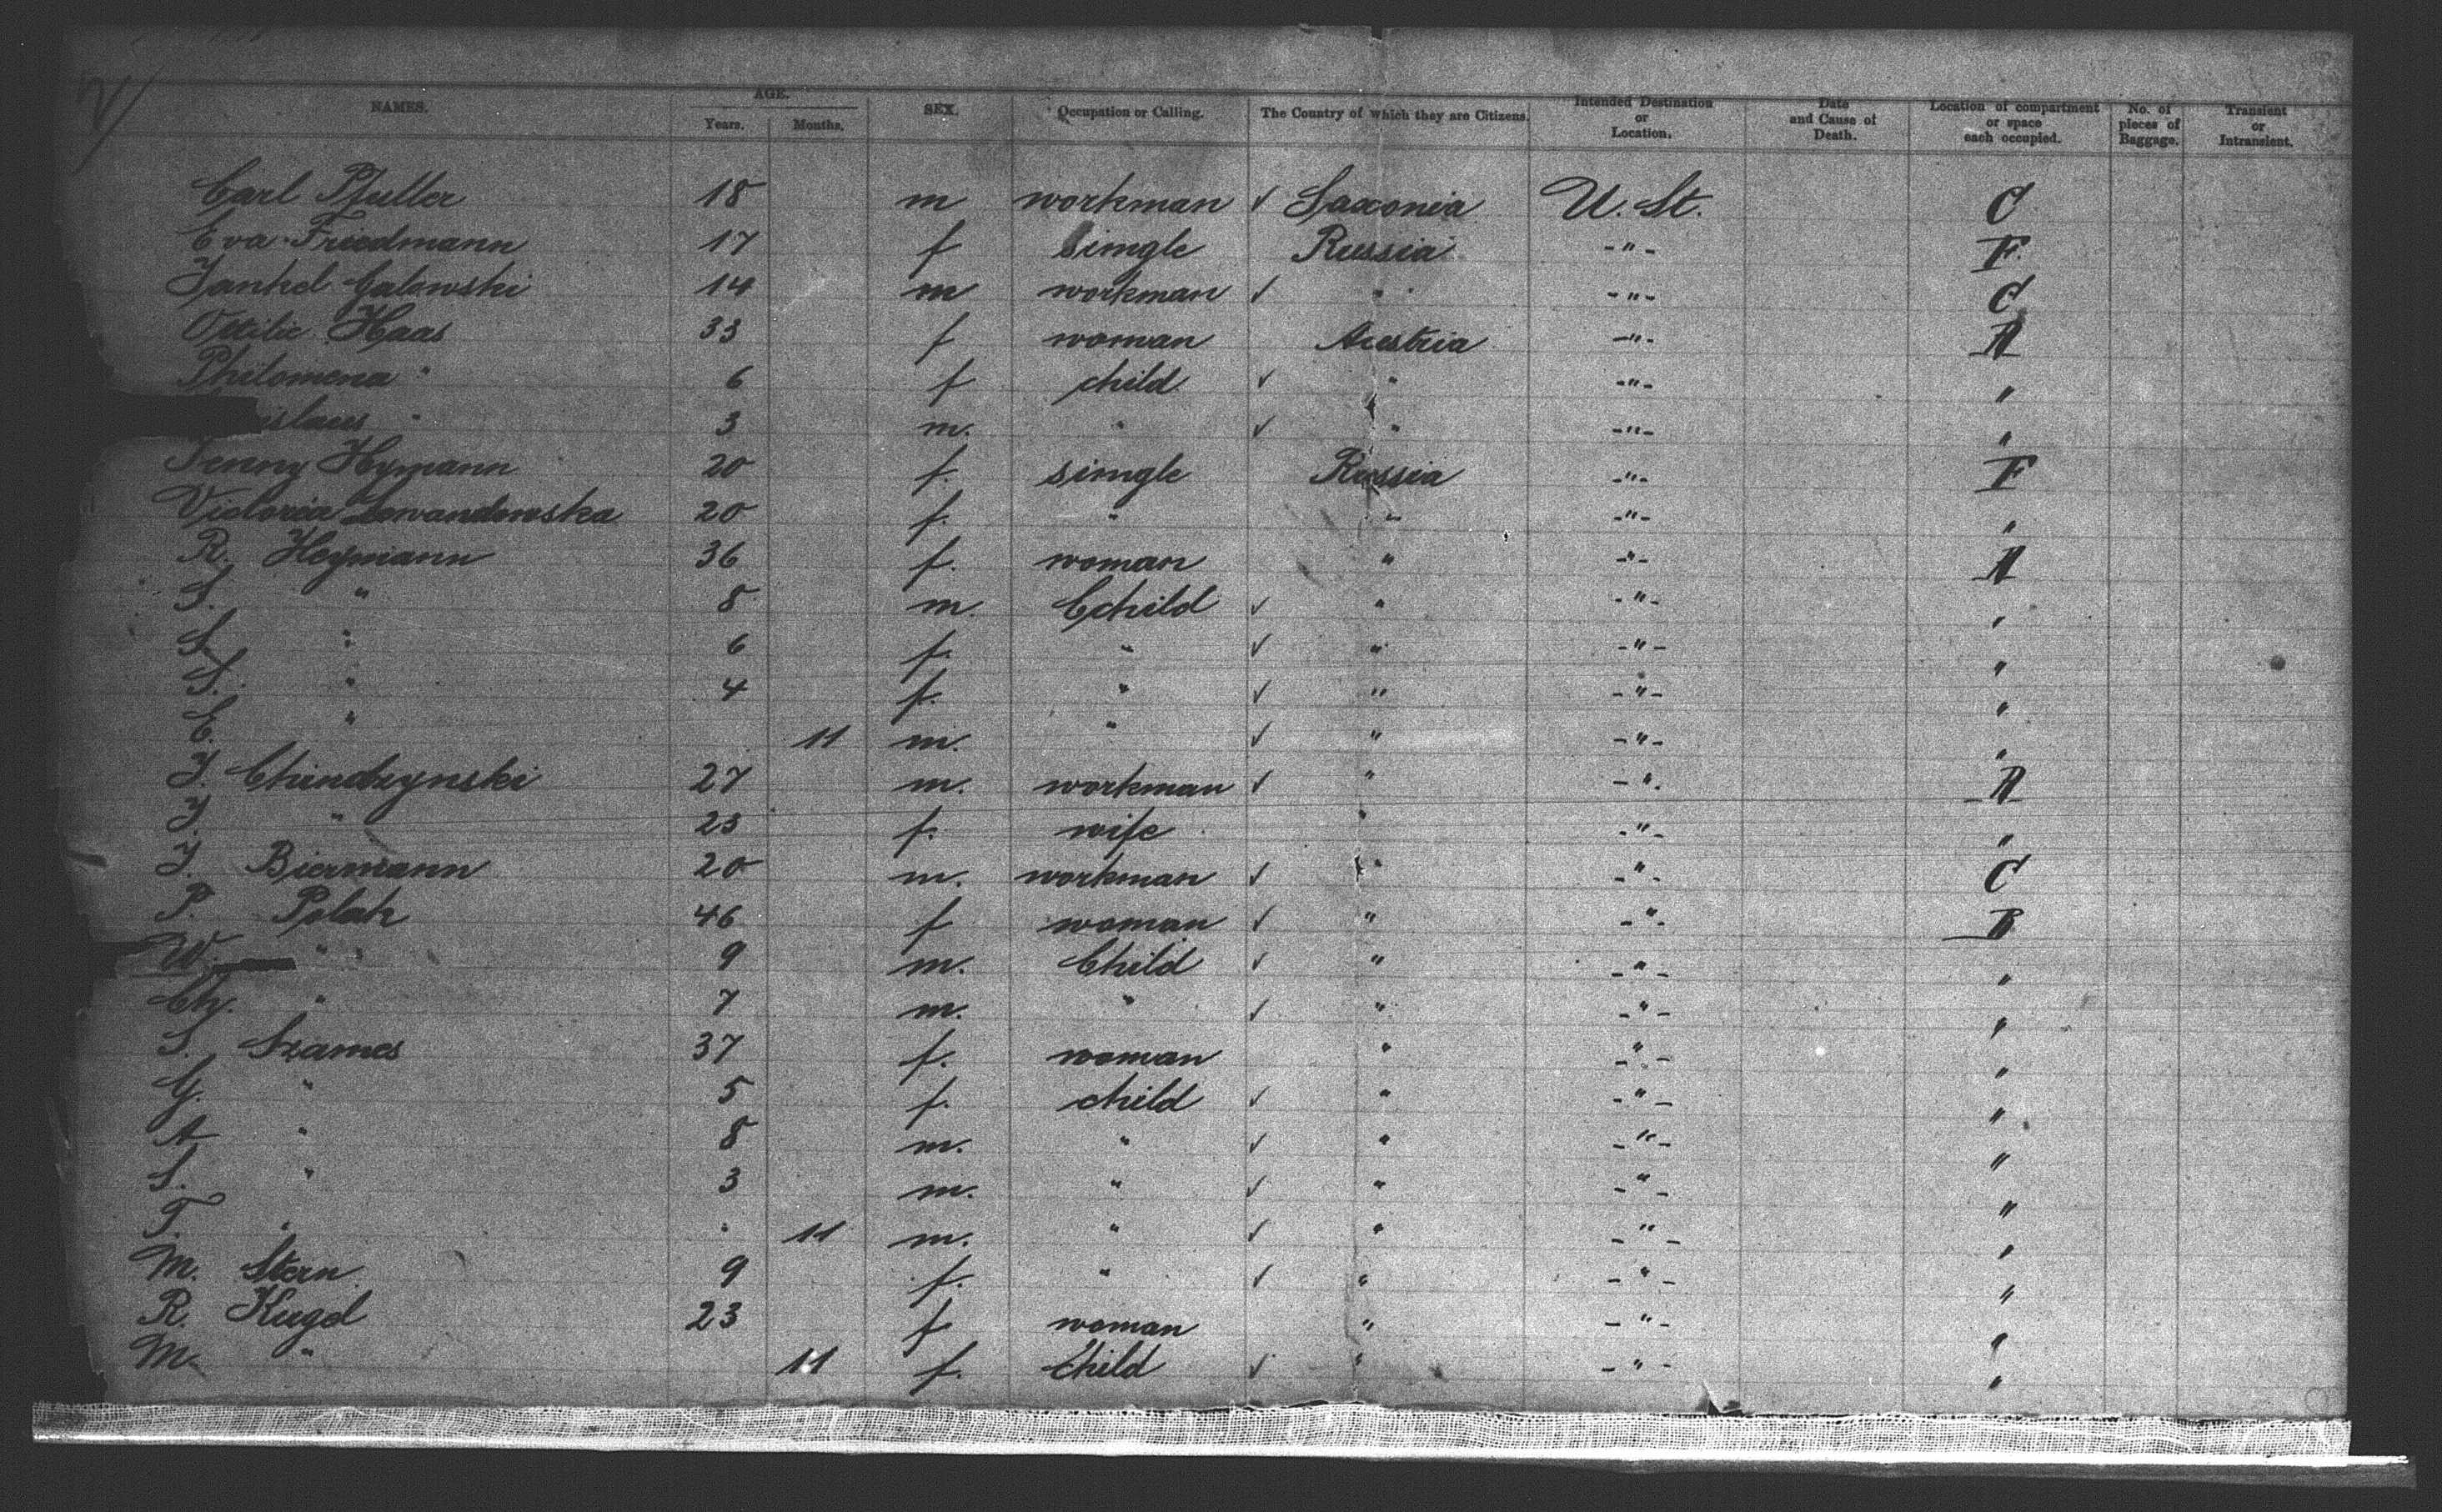 NAMES. AGE. Years. Months. SEX. Occupation or Calling. The Country of which they are Citizens. Intended Destination or Location. Date and Cause of Death. Location of compartment or space each occupied. No. of pieces of Baggage. Transient or Intransient.
Carl Pfuller 18 m workman ✓ Saxonia U. St. C
Eva Friedmann 17 f simgle Russia -"- F.
Jankel Galowski 14 m workman ✓ " -"- C
Ottilie Haas 33 f woman Austria -"- A
Philomena " 6 f child ✓ " -"- "
islaus " 3 m. " ✓ " -"- "
Jenny Hymann 20 f. simgle Russia -"- F
Victoria Lewandowska 20 f. " " -"- "
R. Heymann 36 f. woman " -"- A
S. " 8 m. Cchild ✓ " -"- "
S. " 6 f. " ✓ " -"- "
S. " 4 f. " ✓ " -"- "
E. " 11 m. " ✓ " -"- "
J. Chindzynski 27 m. workman ✓ " -". A
J. " 23 f. wife " -"- "
J. Biermann 20 m. workman ✓ " -"- C
P. Polak 46 f woman ✓ " -"- B
W. " 9 m. Child ✓ " -"- "
Ch. " 7 m. " ✓ " -"- "
S. Szames 37 f. woman " -"- "
G. " 5 f. child ✓ " -"- "
A " 8 m. " ✓ " -"- "
S. " 3 m. " ✓ " -"- "
T. " " 11 m. " ✓ " -"- "
M. Stern 9 f. " ✓ " -"- "
R. Kugel 23 f woman " -"- "
M. " 11 f. Child ✓ " -"- "